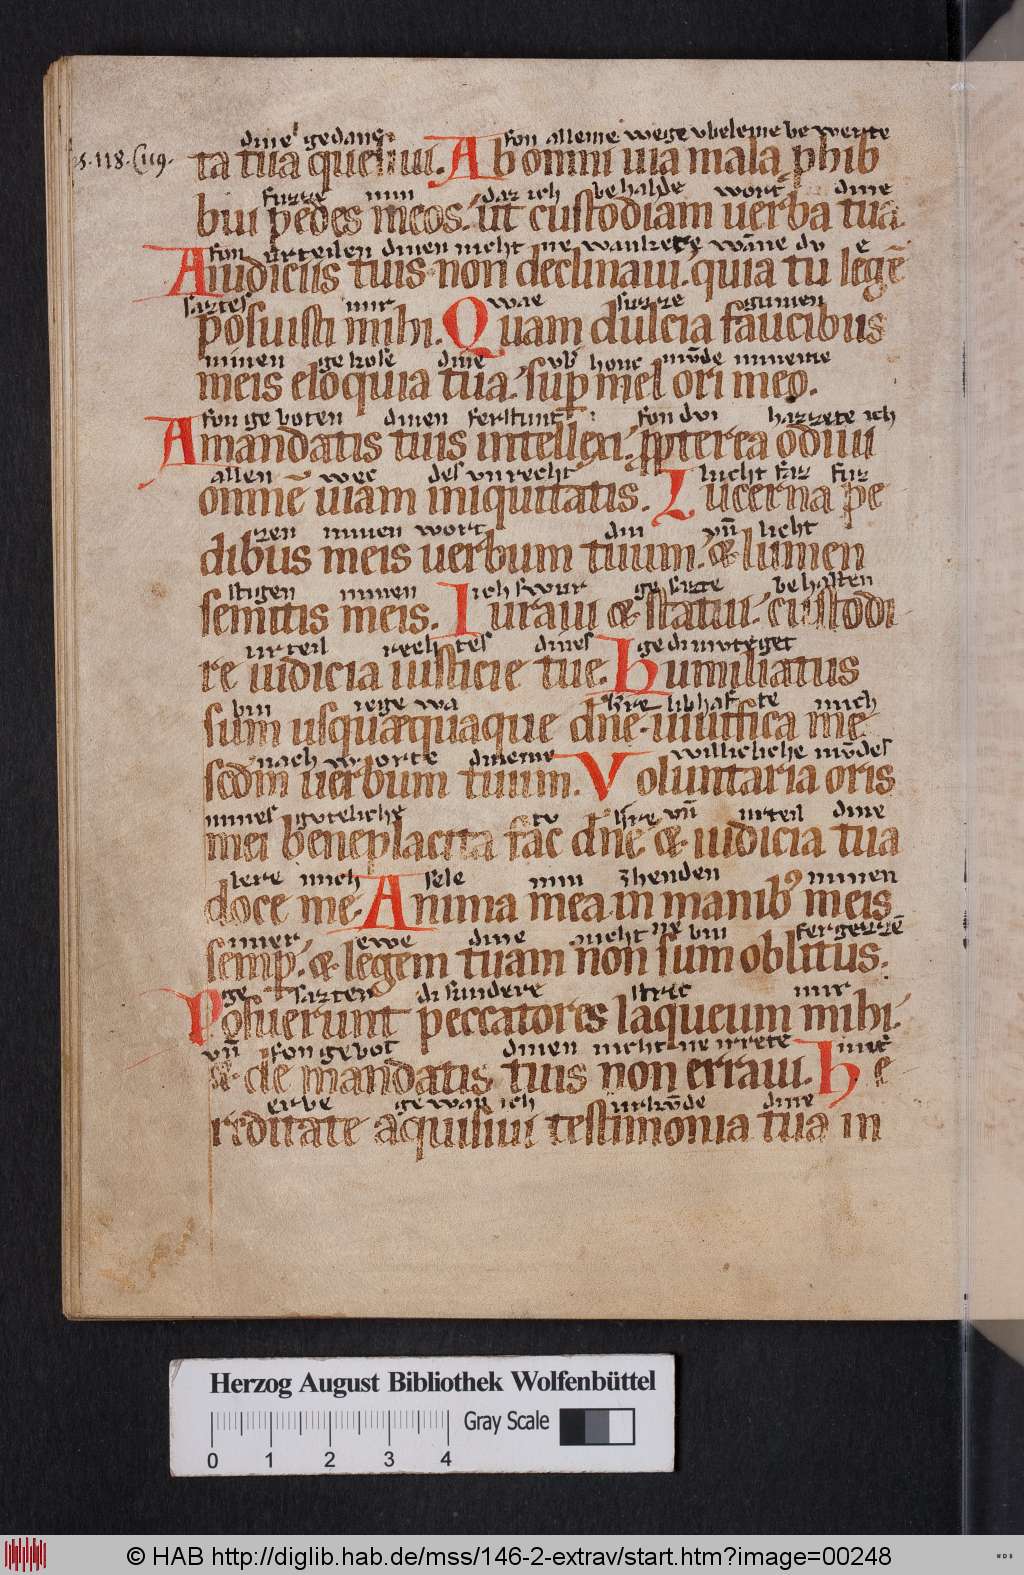 dine gedanc
ps. 118. (119.
ta tua quesiui. Ab omni uia mala phib
fon alleme wege vbeleme be werite
fuzze min daz ich behalde wort dine
bui pedes meos. ut custodiam uerba tua
fon urteilen dinen nicht ne wancte wāne du e
A iudiciis tuis non declinaui. quia tu legē
saztes mir wae suzze gumen
posuisti mihi. Quam dulcia faucibus
minen gekose dine vb honc mūde mineme
meis eloquia tua. sup mel ori meo.
fon geboten dinen ferstunt fon dui hazzete ich
A mandatis tuis intellexi. ppterea odiui
allen wec des vnrecht lucht faz fuz
omne uiam iniquitatis. Lucerna pe
zen minen wort din vn̄ licht
dibus meis uerbum tuum. & lumen
stigen minen ich swur gesazte behalten
semitis meis. Iuraui & statui. custodi
urteil rechtes dines gedimvteget
re iudicia iusticie tue. Humiliatus
bin iegewa hre libhafte mich
sum usquæquaque dn̄e. uiuifica me
nach worte dineme willicliche mūdes
scdm uerbum tuum. Voluntaria oris
mines guteliche tv hre vn̄ urteil dine
mei beneplacita fac dn̄e & iudicia tua
lere mich sele min zhenden minen
doce me. Anima mea in manib' meis
imer ewe dine nicht ne bin fergezzē
semp. & legem tuam non sum oblitus.
ge sazten di sundere stric mir
Posuerunt peccatores laqueum mihi.
vn̄ fon gebot dinen nicht ne irrete mit
& de mandatis tuis non erraui. He
erbe gewan ich urkūde dine
reditate aquisiui testimonia tua in
Herzog August Bibliothek Wolfenbüttel
Gray Scale
0 1 2 3 4
© HAB http://diglib.hab.de/mss/146-2-extrav/start.htm?image=00248